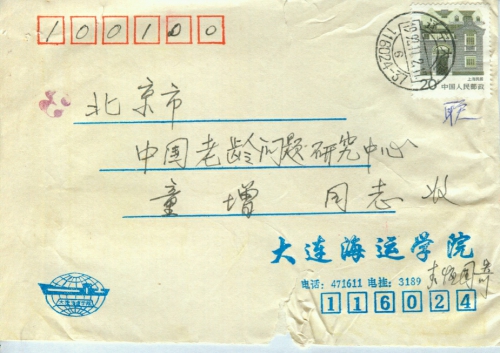 100100
上海民居
20 中国人民邮政
北京市
中国老龄问题研究中心
童增 同志 收
大连海运学院
电话：471611 电挂：3189
116024